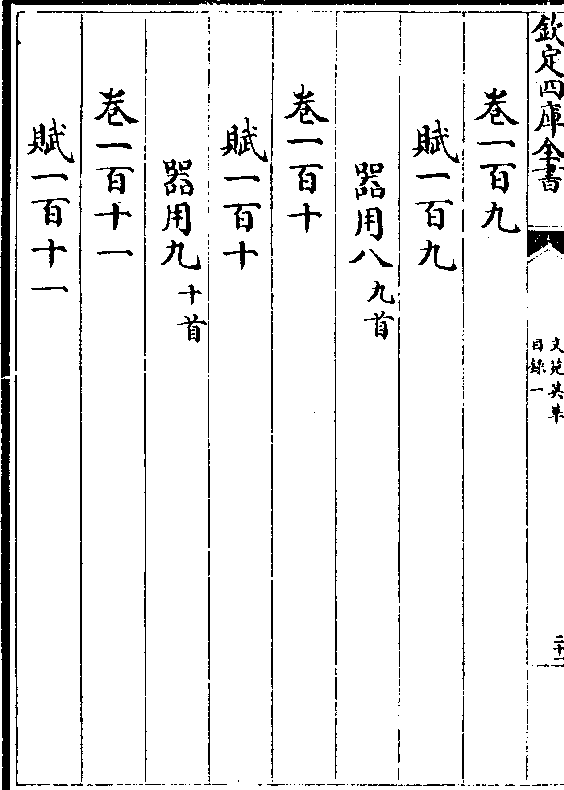 欽定四庫全書
文苑英華
目錄一
二十一
卷一百九
賦一百九
器用八九首
卷一百十
賦一百十
器用九十首
卷一百十一
賦一百十一